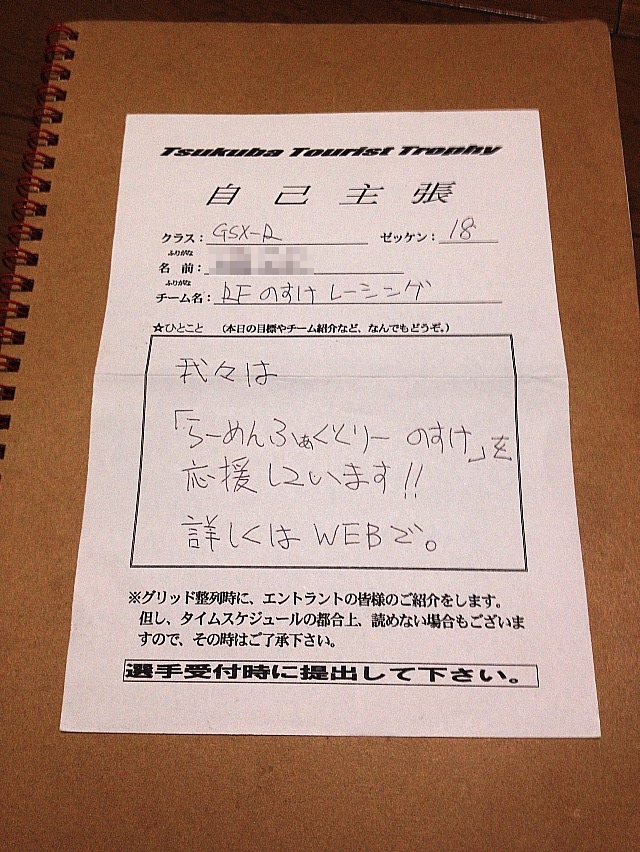 Tsukuba Tourist Trophy
自己主張
クラス: GSX-R ゼッケン: 18
ふりがな
名 前:
ふりがな
チーム名: RFのすけレーシング
☆ひとこと （本日の目標やチーム紹介など、なんでもどうぞ。）
我々は
「らーめんふぁくとりー のすけ」を
応援しています!!
詳しくはWEBで。
※グリッド整列時に、エントラントの皆様のご紹介をします。
但し、タイムスケジュールの都合上、読めない場合もございま
すので、その時はご了承下さい。
選手受付時に提出して下さい。